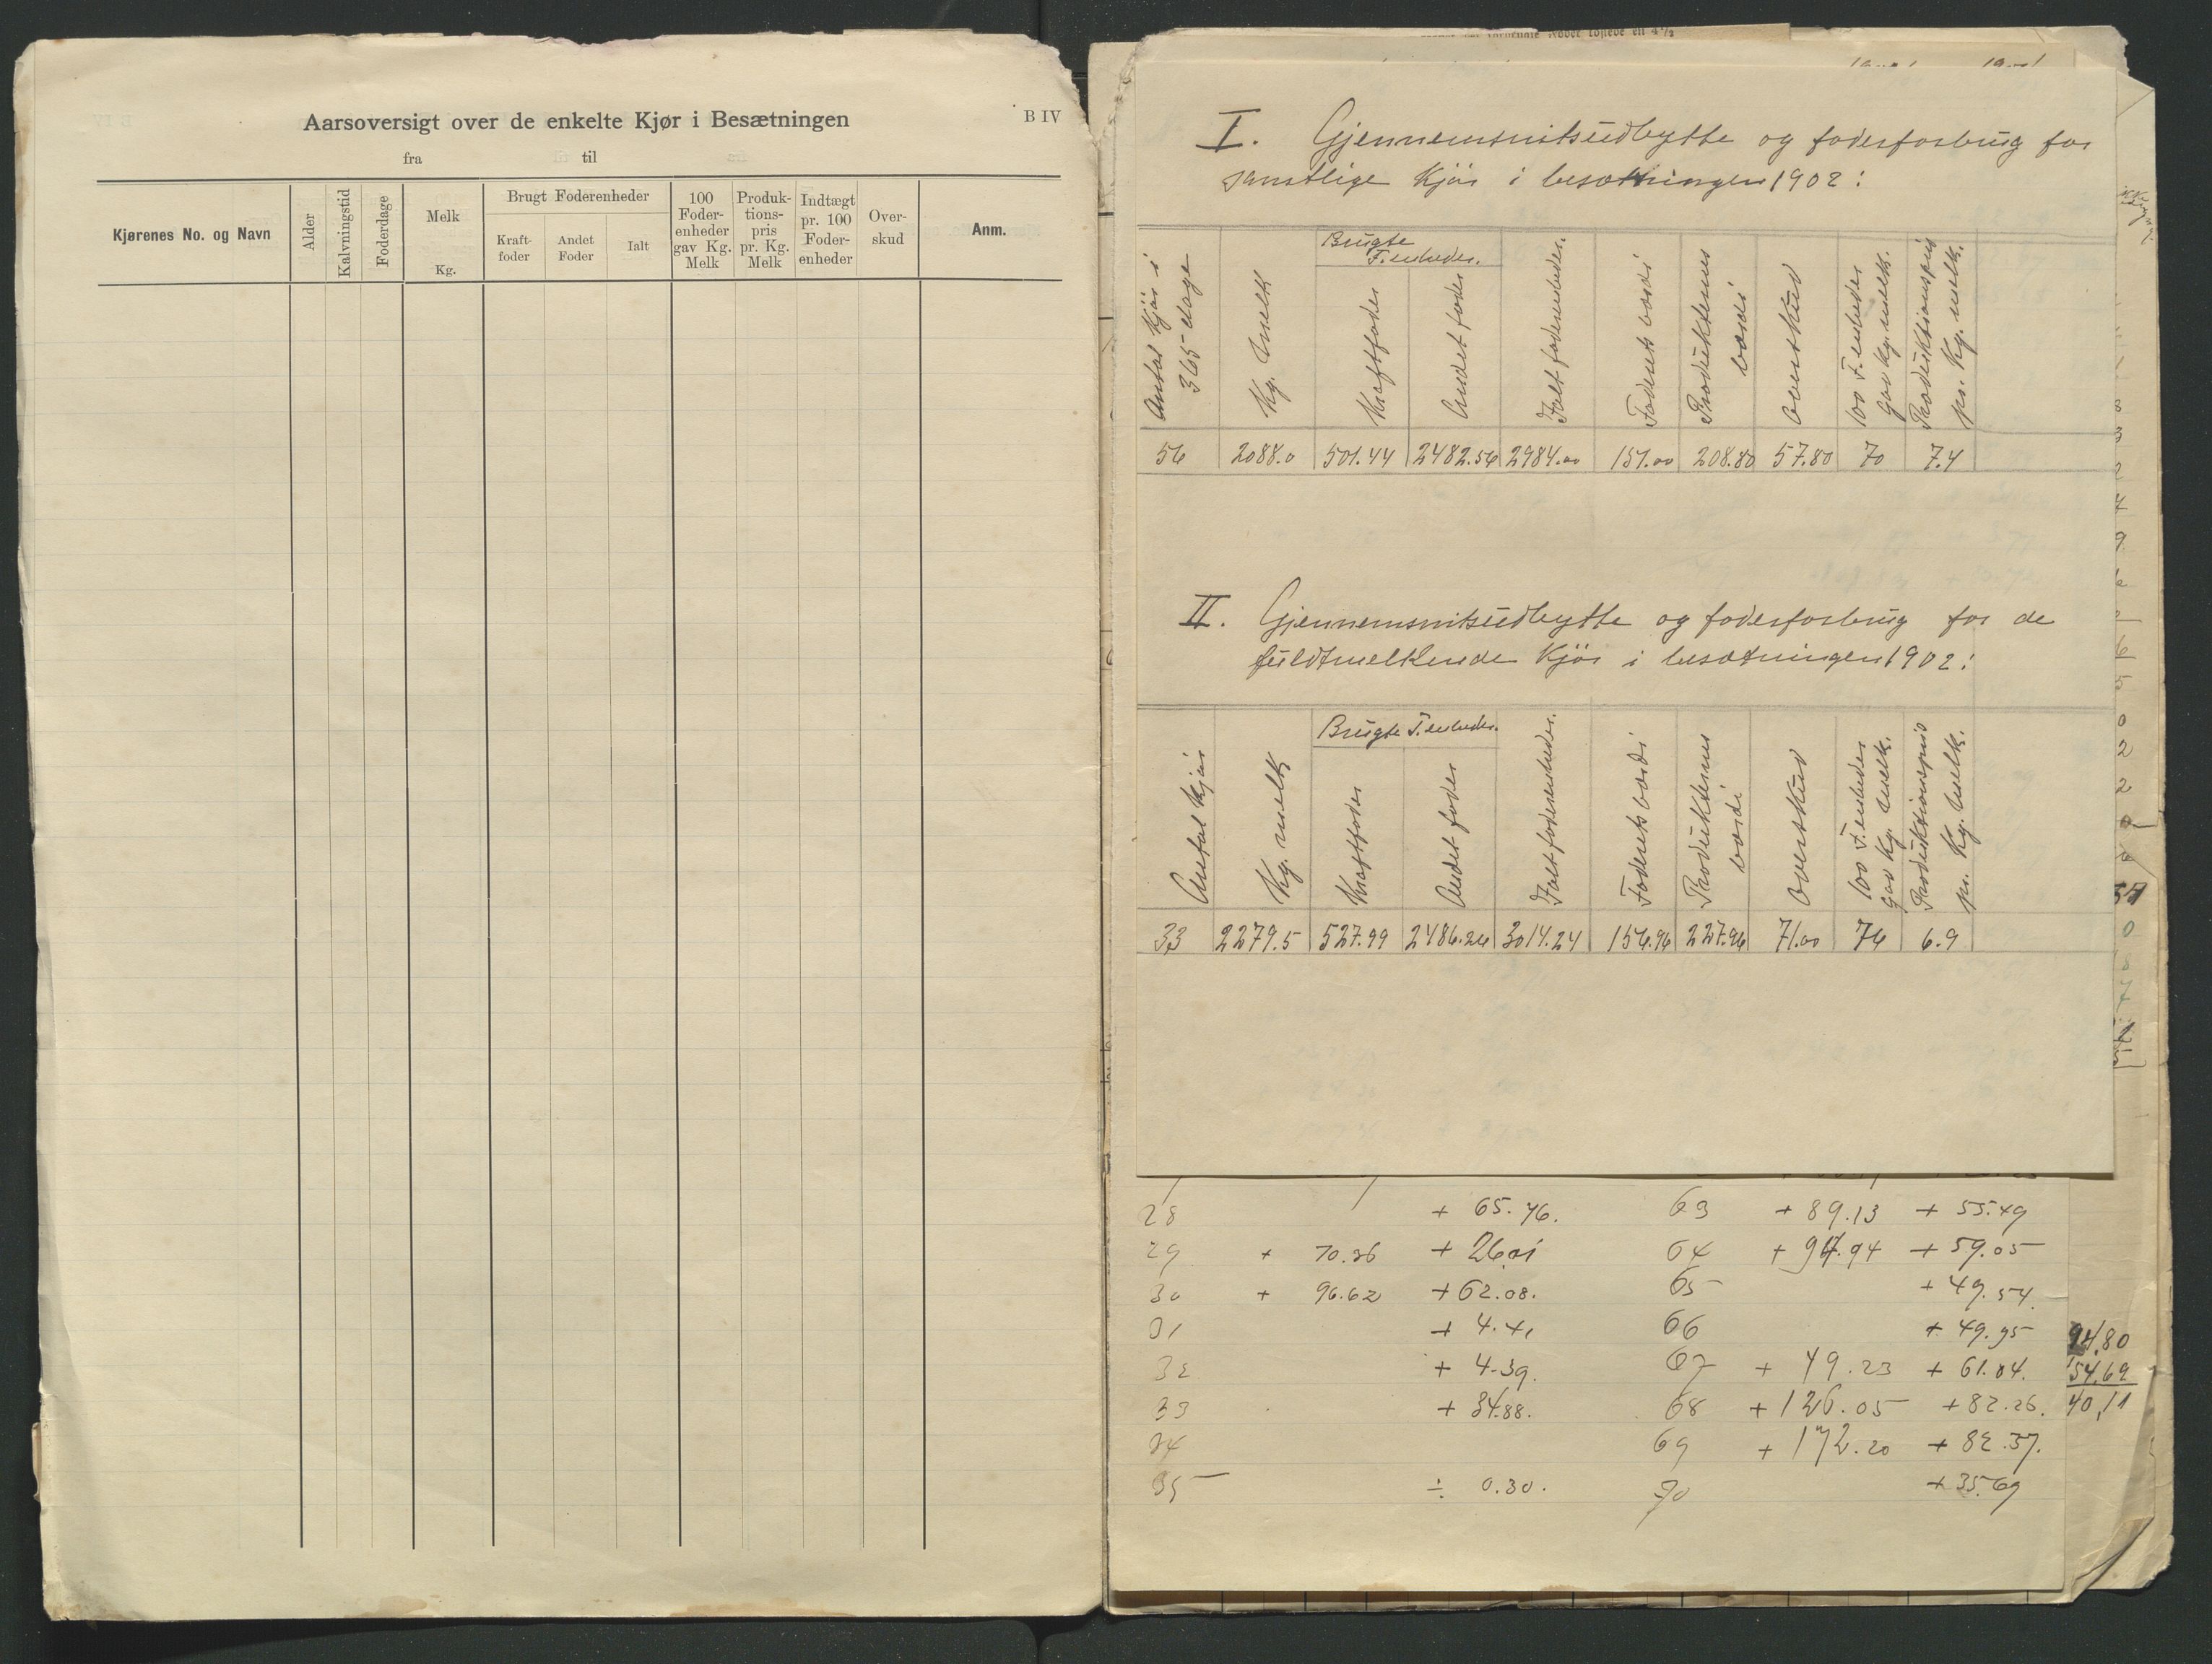 Aarsoversigt over de enkelte Kjør i Besætningen
B IV
fra til
Kjørenes No. og Navn
Alder
Kalvningstid
Foderdage
Melk
Kg.
Brugt Foderenheder
Kraft-
foder
Andet
Foder
Ialt
100
Foder-
enheder
gav Kg.
Melk
Produk-
tions-
pris
pr. Kg.
Melk
Indtægt
pr. 100
Foder-
enheder
Over-
skud
Anm.
I. Gjennemsnitsudbytte og foderforbrug for
samtlige Kjør i besætningen 1902:
Antal Kjør i
365 dage
Kg. Melk
Brugte
F.enheder.
Kraftfoder
Andet foder
Ialt foderenheder.
Foderets værdi
Produkternes
værdi
Overskud
100 F.enheder
gav Kg. melk.
Produktionspris
pr. Kg. melk.
56 2088.0 501.44 2482.56 2984.00 151.00 208.80 57.80 70 7.4
II. Gjennemsnitsudbytte og foderforbrug for de
fuldtmelkende Kjør i besætningen 1902:
Antal Kjør
Kg. melk
Brugte F.enheder.
Kraftfoder
Andet foder
Ialt foderenheder.
Foderets værdi
Produkternes
værdi
Overskud
100 F.enheder
gav Kg. Melk.
Produktionspris
pr. Kg. Melk.
33 2279.5 527.99 2486.26 3014.24 156.96 227.96 71.00 76 6.9
28 + 65.76. 63 + 89.13 + 55.49
29 + 70.36 + 26.01 64 + 94.94 + 59.05
30 + 96.62 + 62.08. 65 + 49.54.
31 + 4.41 66 + 49.95
32 + 4.39. 67 + 79.23 + 61.04.
33 + 34.88. 68 + 126.05 + 82.26.
34 69 + 172.20 + 82.37.
35 ÷ 0.30. 70 + 35.69
94,80
54,69
40,11